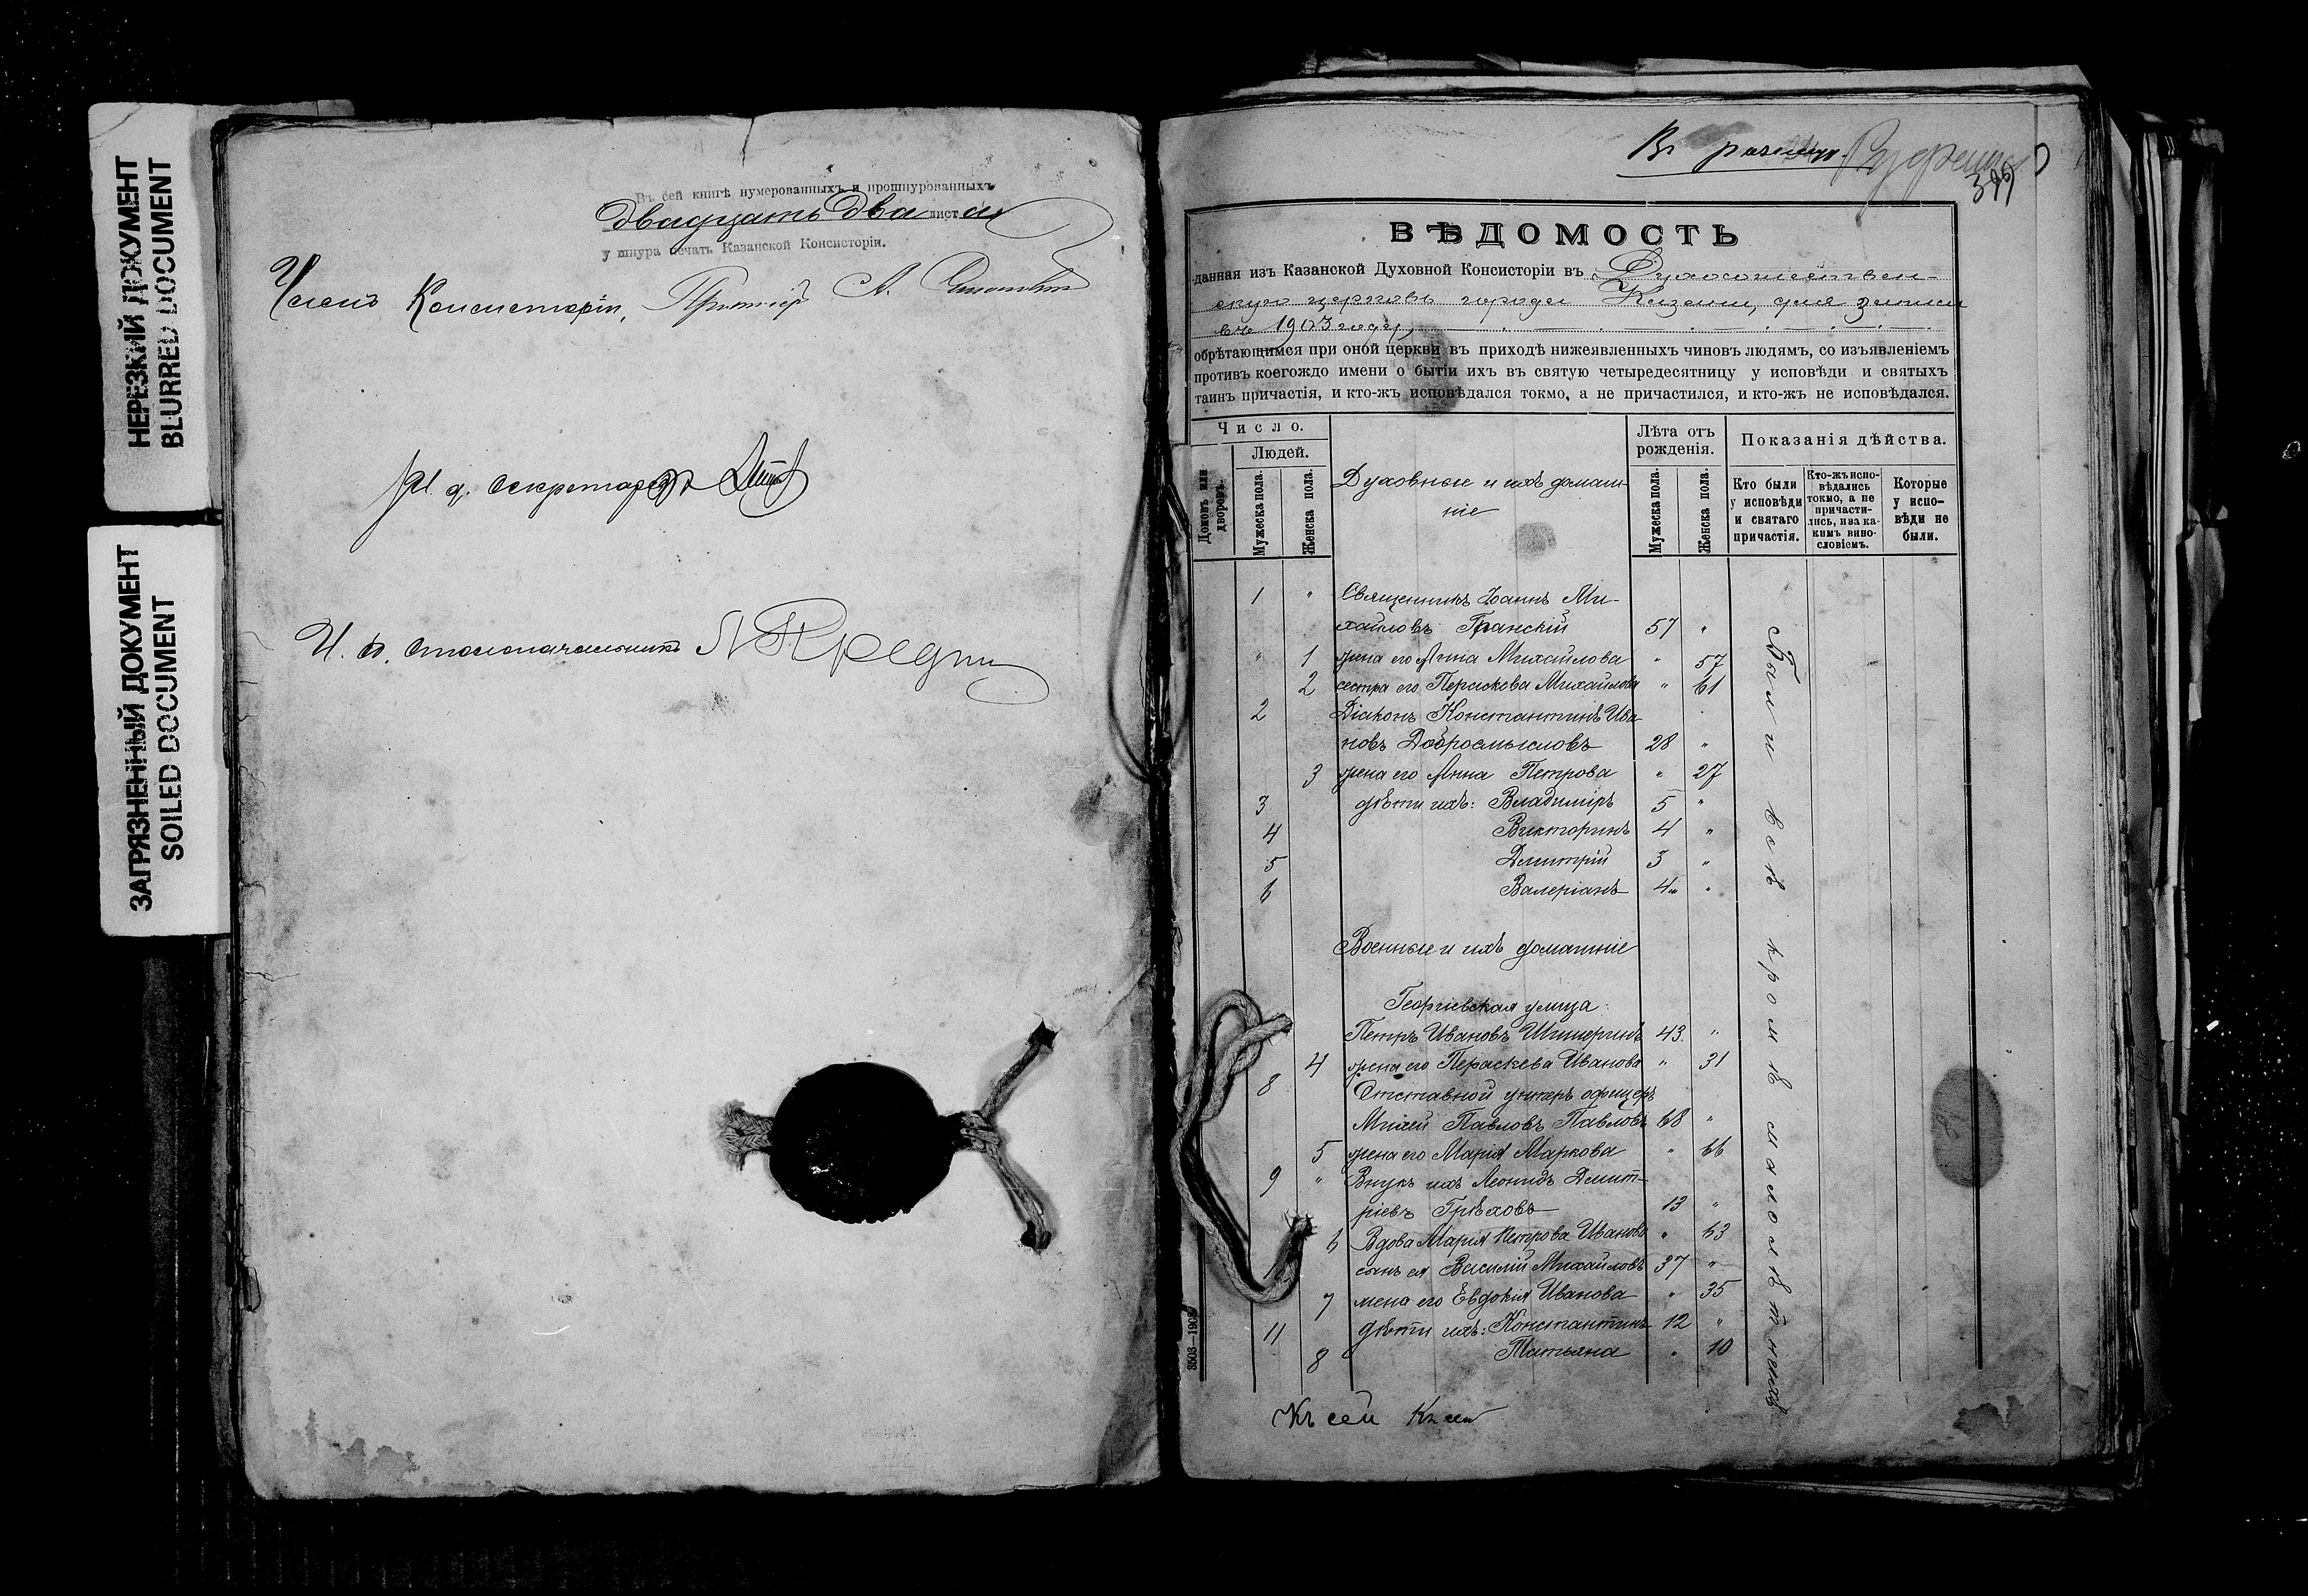 НЕРЕЗКИЙ ДОКУМЕНТ
BLURRED DOCUMENT
ЗАГРЯЗНЕННЫЙ ДОКУМЕНТ
SOILED DOCUMENT
Въ сей книгѣ нумерованныхъ и прошнурованныхъ
двадцать два листа
у шнура печать Казанской Консисторіи.
Членъ Консисторіи, А.
И. д. Секретаря
И. д. Столоначальника
Въ
399
ВѢДОМОСТЬ
данная изъ Казанской Духовной Консисторіи въ Духосошествен-
скую церковь города Казани, для записи
въ 1903 году,
обрѣтающимся при оной церкви въ приходѣ нижеявленныхъ чиновъ людямъ, со изъявленіемъ
противъ коегождо имени о бытіи ихъ въ святую четыредесятницу у исповѣди и святыхъ
таинъ причастія, и кто-жъ исповѣдался токмо, а не причастился, и кто-жъ не исповѣдался.
Число.
Людей.
Домовъ или дворовъ.
Мужеска пола.
Женска пола.
Духовные и ихъ домаш-
ніе
Лѣта отъ рожденія.
Мужеска пола.
Женска пола.
Показанія дѣйства.
Кто были у исповѣди и святаго причастія.
Кто-жъ исповѣдались токмо, а не причастились, и за какимъ винословіемъ.
Которые у исповѣди не были.
1 " Священникъ Іоаннъ Ми-
хайловъ Гранскій 57 "
" 1 жена его Анна Михайлова " 57
2 сестра его Параскева Михайлова " 61
2 Діаконъ Константинъ Ива
новъ Добросмысловъ 28 "
3 жена его Анна Петрова " 27
3 дѣти ихъ: Владиміръ 5 "
4 Викторинъ 4 "
5 Дмитрій 3 "
6 Валеріанъ "
Военные и ихъ домашніе
Георгіевская улица:
Петръ Ивановъ 43. "
4 жена его Параскева Иванова " 31
8 Отставной унтеръ офицеръ
Михей Павловъ Павловъ 68 "
5 жена его Марія Маркова " 66
9 " Внукъ ихъ Леонидъ Дмит-
ріевъ Грѣховъ 13 "
6 Вдова Марія Петрова Иванова " 63
сынъ ея Василій Михайловъ 37 "
7 жена его Евдокія Иванова " 35
11 дѣти ихъ: Константинъ 12 "
8 Татьяна " 10
Были всѣ кромѣ малолѣтнихъ
3503—190
Къ сей Къ сей